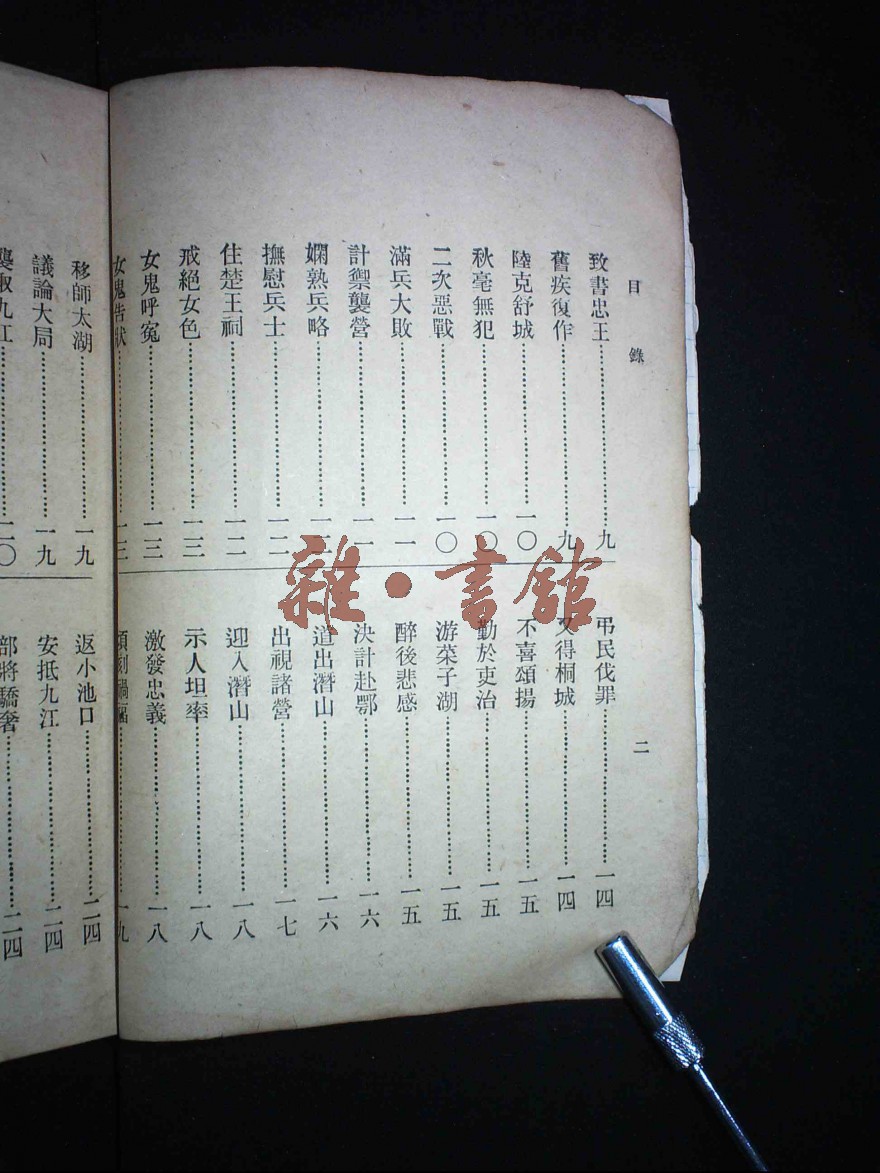 目錄
二
致書忠王………九
舊疾復作………九
陸克舒城………一〇
秋毫無犯………一〇
二次惡戰………一〇
滿兵大敗………一一
計禦襲營………一一
嫻熟兵略………一二
撫慰兵士………一二
住楚王祠………一二
戒絕女色………一三
女鬼呼冤………一三
女鬼告狀………一三
弔民伐罪………一四
又得桐城………一四
不喜頌揚………一五
勤於吏治………一五
游菜子湖………一五
醉後悲感………一五
決計赴鄂………一六
道出潛山………一六
出視諸營………一七
迎入潛山………一八
示人坦率………一八
激發忠義………一八
頃刻禍福………一九
移師太湖………一九
議論大局………一九
九江………二〇
返小池口………二四
安抵九江………二四
部將驕奢………二四
雜·書館